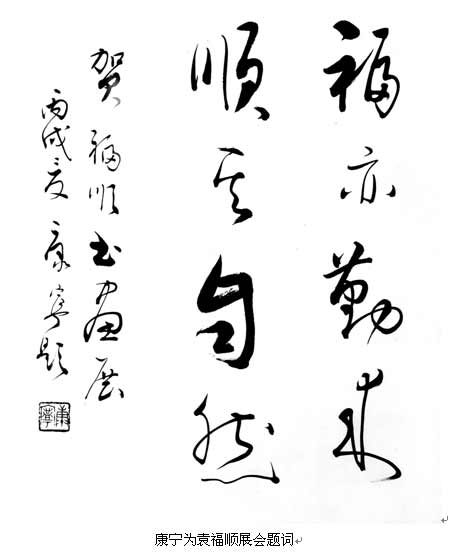 福亦勤来
順其自然
贺福顺书畫展
丙戌夏康寧题
康寧
康宁为袁福顺展会题词